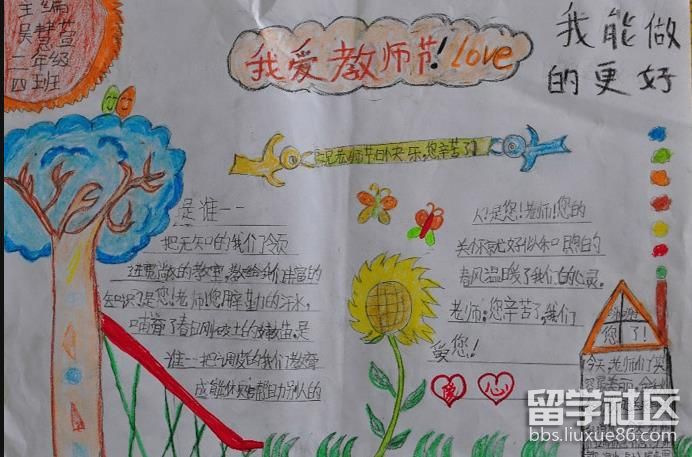 主编
吴梓萱
二年级
四班
我爱教师节!love
我能做
的更好
祝老师节日快乐,您辛苦了!
是谁一一
把无知的我们领
进宽敞的教室,教给我们丰富的
知识?是您!老师!您用辛勤的汗水,
哺育了春日刚破土的嫩苗。是
谁一把调皮的我们教育
成能体贴帮助别人的
人?是您!老师!您的
关怀就好似和煦的
春风温暖了我们的心灵。
老师,您辛苦了,我们
爱您!
爱 心
您
了!
今天,老师们
留学社区
bbs.liuxue86.com